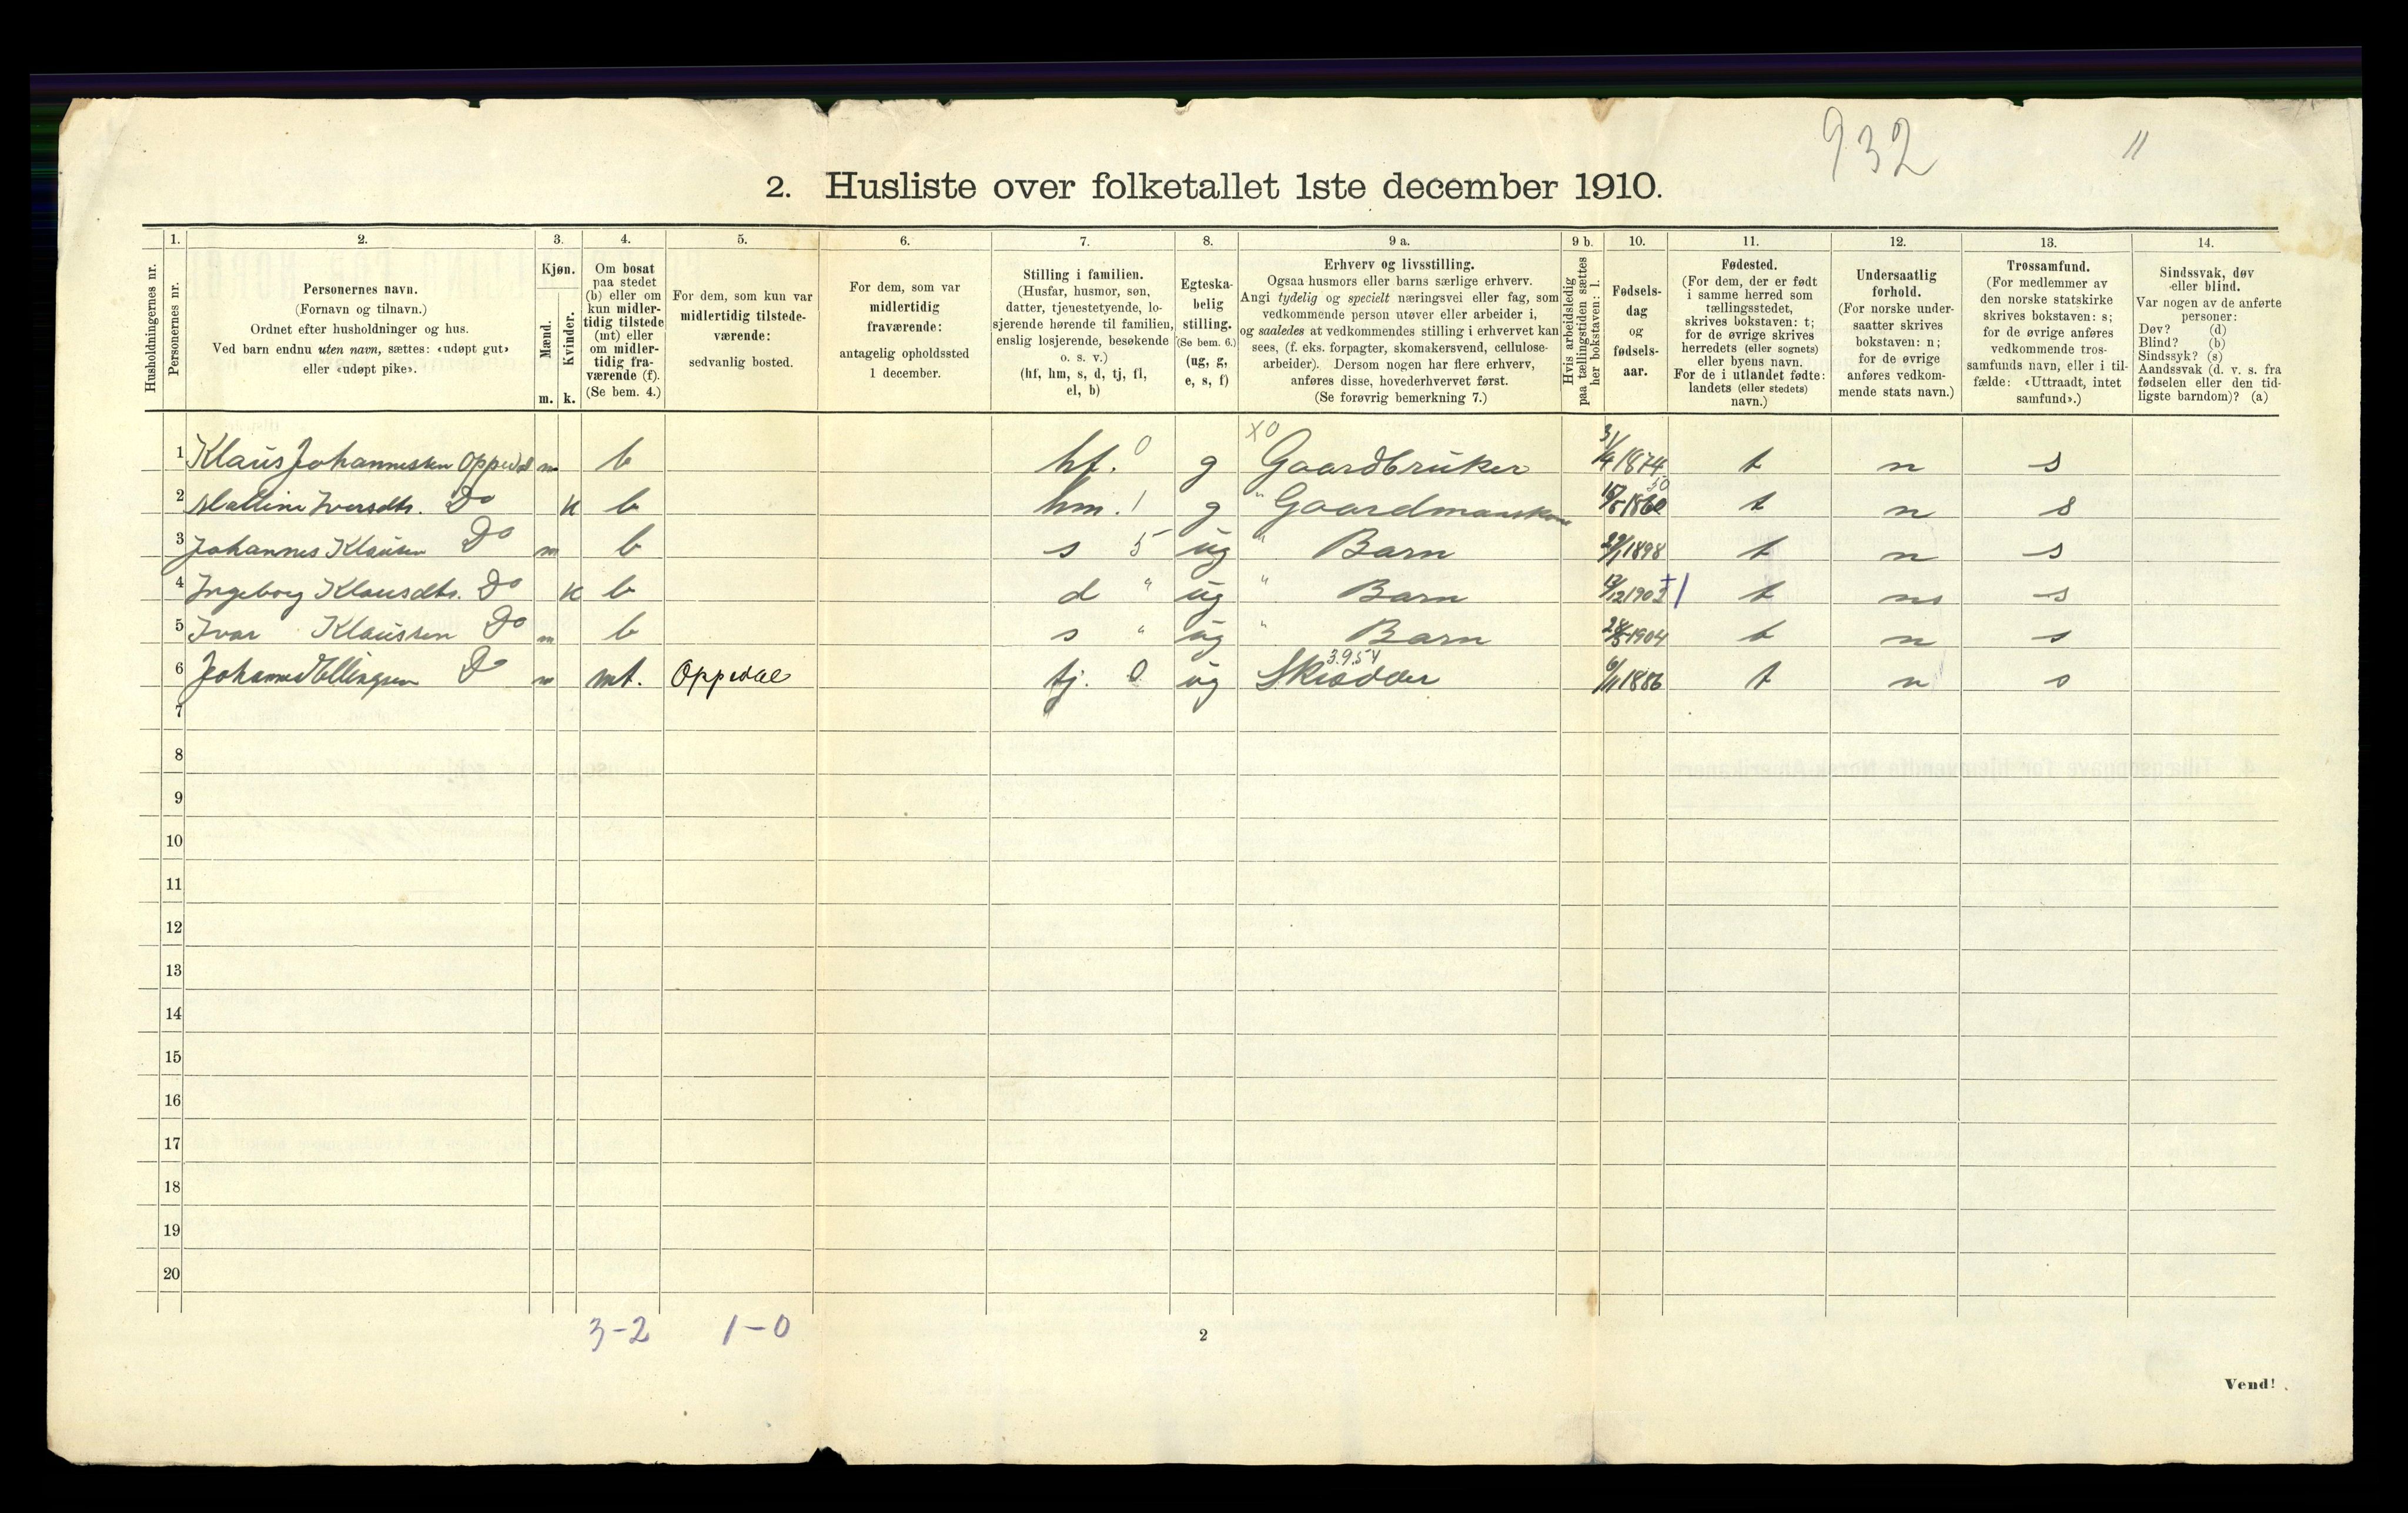 932
11
2. Husliste over folketallet 1ste december 1910.
1. 2. 3. 4. 5. 6. 7. 8. 9 a. 9 b. 10. 11. 12. 13. 14.
Husholdningernes nr.
Personernes nr.
Personernes navn.
(Fornavn og tilnavn.)
Ordnet efter husholdninger og hus.
Ved barn endnu uten navn, sættes: «udøpt gut»
eller «udøpt pike».
Kjøn.
Mænd.
Kvinder.
m. k.
Om bosat
paa stedet
(b) eller om
kun midler-
tidig tilstede
(mt) eller
om midler-
tidig fra-
værende (f).
(Se bem. 4.)
For dem, som kun var
midlertidig tilstede-
værende:
sedvanlig bosted.
For dem, som var
midlertidig
fraværende:
antagelig opholdssted
1 december.
Stilling i familien.
(Husfar, husmor, søn,
datter, tjenestetyende, lo-
sjerende hørende til familien,
enslig losjerende, besøkende
o. s. v.)
(hf, hm, s, d, tj, fl,
el, b)
Egteska-
belig
stilling.
(Se bem. 6.)
(ug, g,
e, s, f)
Erhverv og livsstilling.
Ogsaa husmors eller barns særlige erhverv.
Angi tydelig og specielt næringsvei eller fag, som
vedkommende person utøver eller arbeider i,
og saaledes at vedkommendes stilling i erhvervet kan
sees, (f. eks. forpagter, skomakersvend, cellulose-
arbeider). Dersom nogen har flere erhverv,
anføres disse, hovederhvervet først.
(Se forøvrig bemerkning 7.)
Hvis arbeidsledig
paa tællingstiden sættes
her bokstaven: l.
Fødsels-
dag
og
fødsels-
aar.
Fødested.
(For dem, der er født
i samme herred som
tællingsstedet,
skrives bokstaven: t;
for de øvrige skrives
herredets (eller sognets)
eller byens navn.
For de i utlandet fødte:
landets (eller stedets)
navn.)
Undersaatlig
forhold.
(For norske under-
saatter skrives
bokstaven: n;
for de øvrige
anføres vedkom-
mende stats navn.)
Trossamfund.
(For medlemmer av
den norske statskirke
skrives bokstaven: s;
for de øvrige anføres
vedkommende tros-
samfunds navn, eller i til-
fælde: «Uttraadt, intet
samfund».)
Sindssvak, døv
eller blind.
Var nogen av de anførte
personer:
Døv? (d)
Blind? (b)
Sindssyk? (s)
Aandssvak (d. v. s. fra
fødselen eller den tid-
ligste barndom)? (a)
X0
1 Klaus Johannessen Oppedal m b hf. 0 g Gaardbruker 1874 t n s
2 Iversdtr. Do k b hm. 1 g " Gaardmanskone t n s
3 Johannes Klausen Do m b s 5 ug " Barn 1898 t n s
4 Ingeborg Klausdtr. Do k b d " ug " Barn t n s
5 Ivar Klaussen Do m b s " ug " Barn 1904 t n s
3.9.54
6 Johannes Ellingsen Do m mt. Oppedal tj. 0 ug Skrædder 6/11 1886 t n s
7
8
9
10
11
12
13
14
15
16
17
18
19
20
3-2 1-0
2
Vend!